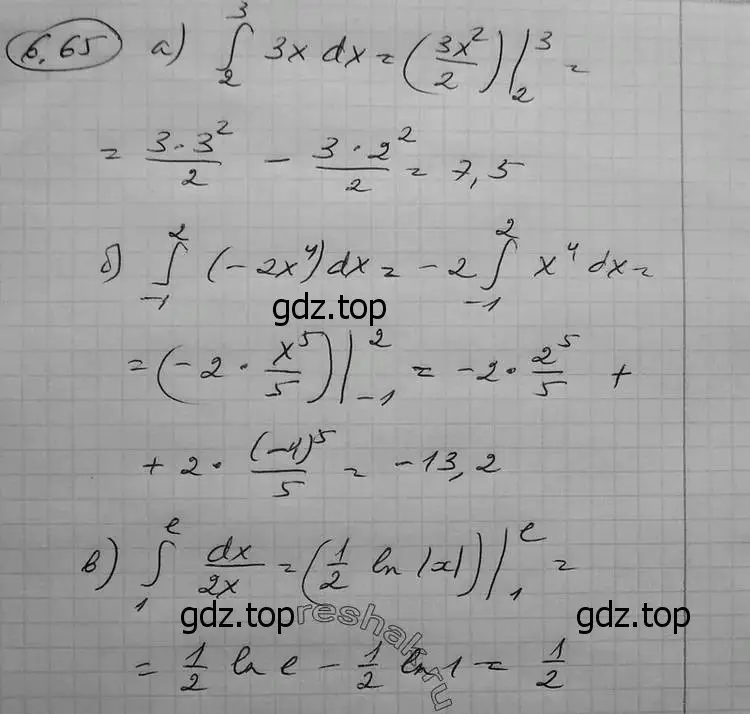 6.65 а) ∫₂³ 3x dx = (3x²/2)|₂³ =
= 3·3²/2 − 3·2²/2 = 7,5
б) ∫₋₁² (−2x⁴) dx = −2 ∫₋₁² x⁴ dx =
gdz.top
= (−2 · x⁵/5)|₋₁² = −2 · 2⁵/5 +
+ 2 · (−1)⁵/5 = −13,2
в) ∫₁ᵉ dx/2x = (1/2 ln |x|)|₁ᵉ =
gdz.top reshak.ru gdz.top
= 1/2 ln e − 1/2 ln 1 = 1/2